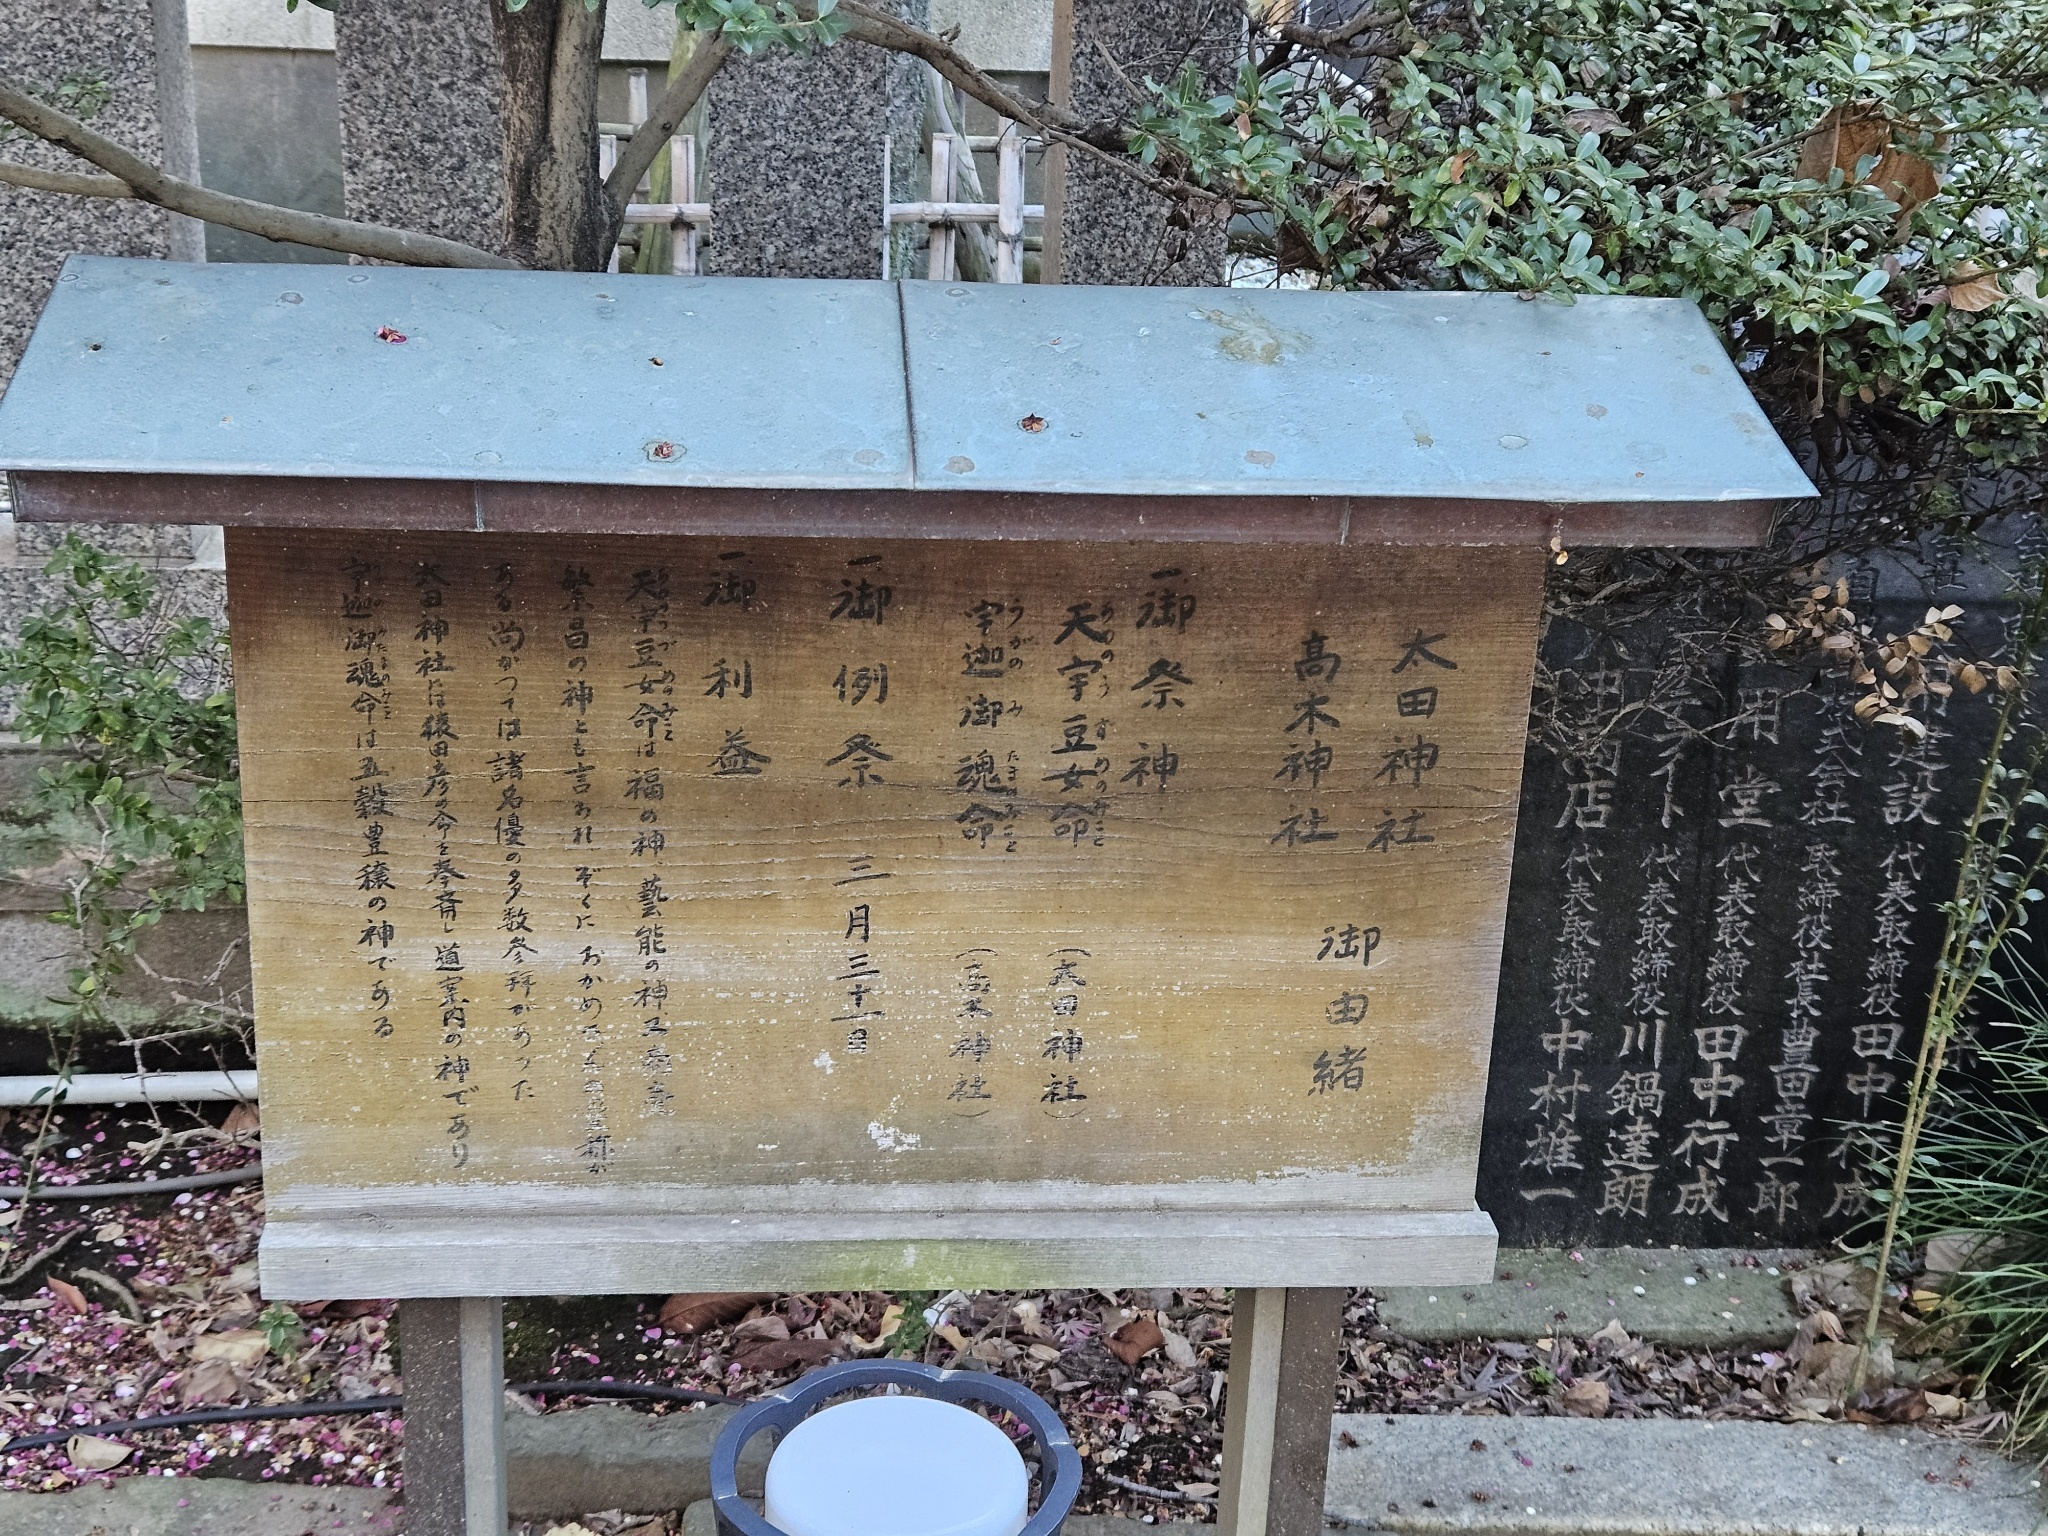 太田神社
高木神社
御由緒
一御祭神
天宇豆女命（太田神社）
あめのうずめのみこと
宇迦御魂命（高木神社）
うがのみたまのみこと
一御例祭 三月三十一日
一御利益
天宇豆女命は福の神、藝能の神又
繁昌の神とも言われ ぞくに おかめ
ある尚かつては諸名優の多数参拝があった
太田神社には猿田彦の命を奉斎し道案内の神であり
宇迦御魂命は五穀豊穣の神である
建設 代表取締役 田中行成
株式会社 取締役社長 豊田章一郎
用堂 代表取締役 田中行成
ライト 代表取締役 川鍋達朗
商店 代表取締役 中村雄一